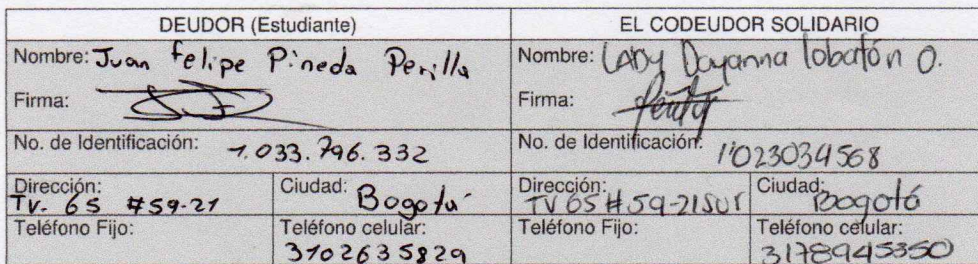 DEUDOR (Estudiante) EL CODEUDOR SOLIDARIO
Nombre: Juan Felipe Pineda Perilla Nombre: LADY Dayanna lobatón O.
Firma: Firma:
No. de Identificación: 1.033.796.332 No. de Identificación: 1'023034568
Dirección: Ciudad: Bogotá Dirección: Ciudad: Bogotá
TV. 65 #59-21 TV 65 # 59-21 SUR
Teléfono Fijo: Teléfono celular: Teléfono Fijo: Teléfono celular:
3102635829 3178945350